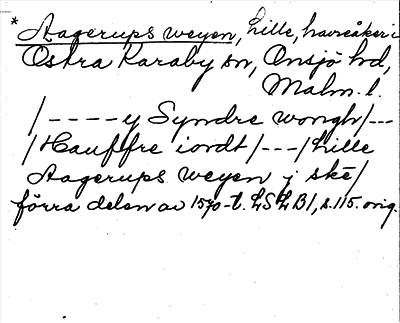 * Aagerups weyen, Lille, havreåker i
Östra Karaby sn, Onsjö hd,
Malm. l.
/----y Syndre wongh/---
/Hauffre iordt/---/Lille
Aagerups weyen j ske/
förra delen av 1570-t. LSLB1, s. 115. orig.